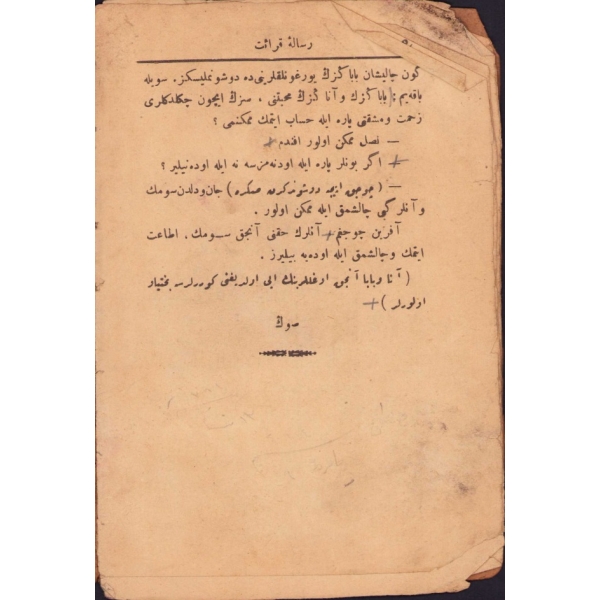 رسالهٔ قرائت
كون چاليشان باباڭزڭ يورغونلقلرينى ده دوشونمليسكز . سويله
باقه‌يم : باباڭزك و آنا ڭزڭ محبتنى ، سزڭ ايچون چكدكلرى
زحمت و مشقتى پاره ايله حساب ايتمك ممكنمى ؟
— نصل ممكن اولور افندم +
+ اگر بونلر پاره ايله اودنه‌مزسه نه ايله اوده‌نيلير ؟
— ( چوجق ايجه دوشوندكدن صكره ) جان و دلدن سومك
و آنلر گبى چالشمق ايله ممكن اولور .
آفرين چوجغم + آنلرك حقنى آنجق سومك ، اطاعت
ايتمك و چالشمق ايله اوده‌يه بيليرز .
( آنا و بابا آنجق اوغللرينك ايى اولديغنى كوررلرسه بختيار
اولورلر ) +
صوڭ